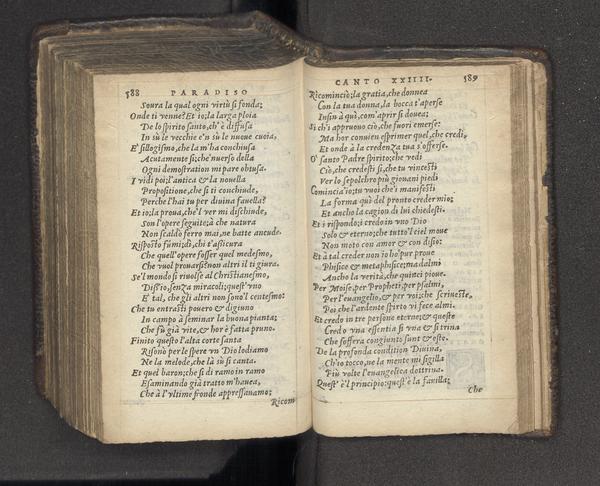 588 PARADISO
Soura la qual ogni virtù si fonda;
Onde ti venne? Et io; la larga ploia
De lo spirito santo, ch'è diffusa
In sù le vecchie e'n sù le nuoue cuoia,
E' sillogismo, che la m'ha conchiusa
Acutamente sì; che'nuerso della
Ogni demostration mi pare obtusa.
I vdi poi; l'antica & la nouella
Propositione, che sì ti conchiude,
Perche l'hai tu per diuina fauella?
Et io; la proua, che'l ver mi dischiude,
Son l'opere seguite; à che natura
Non scaldò ferro mai, ne batte ancude.
Risposto fùmi; dì, chi t'assicura
Che quell'opere fosser quel medesmo,
Che vuol prouarsi? non altri il ti giura.
Se'l mondo si riuolse al Christianesmo,
Diss'io, senza miracoli; quest'vno
E' tal, che gli altri non sono'l centesmo:
Che tu entrasti pouero & digiuno
In campo à seminar la buona pianta;
Che fù già vite, & hor è fatta pruno.
Finito questo l'alta corte santa
Risonò per le spere vn Dio lodiamo
Ne la melode, che là sù si canta.
Et quel baron; che sì di ramo in ramo
Esaminando già tratto m'hauea,
Che à l'vltime fronde appressauamo;
Ricom
CANTO XXIIII. 589
Ricominciò; la gratia, che donnea
Con la tua donna, la bocca t'aperse
Insin à quì, com'aprir si douea;
Sì ch'i appruouo ciò, che fuori emerse:
Ma hor conuien esprimer quel, che credi,
Et onde à la credenza tua s'offerse.
O' santo Padre spirito; che vedi
Ciò, che credesti sì, che tu vincesti
Ver lo sepolchro più giouani piedi
Comincia'io; tu vuoi ch'i manifesti
La forma quì del pronto creder mio;
Et ancho la cagion di lui chiedesti.
Et i rispondo; i credo in vno Dio
Solo & eterno; che tutto'l ciel moue
Non moto con amor & con disio:
Et à tal creder non io hò pur proue
Phisice & metaphisice; ma dalmi
Ancho la verità, che quinci pioue.
Per Moise, per Propheti; per psalmi,
Per l'euangelio, & per voi; che scriueste,
Poi che l'ardente spirto vi fece almi.
Et credo in tre persone eterne; & queste
Credo vna essentia sì vna & sì trina
Che soffera congiunto sunt & este.
De la profonda condition Diuina,
Ch'io tocco, ne la mente mi sigilla
Più volte l'euangelica dottrina.
Quest'è'l principio; quest'è la fauilla;
Che